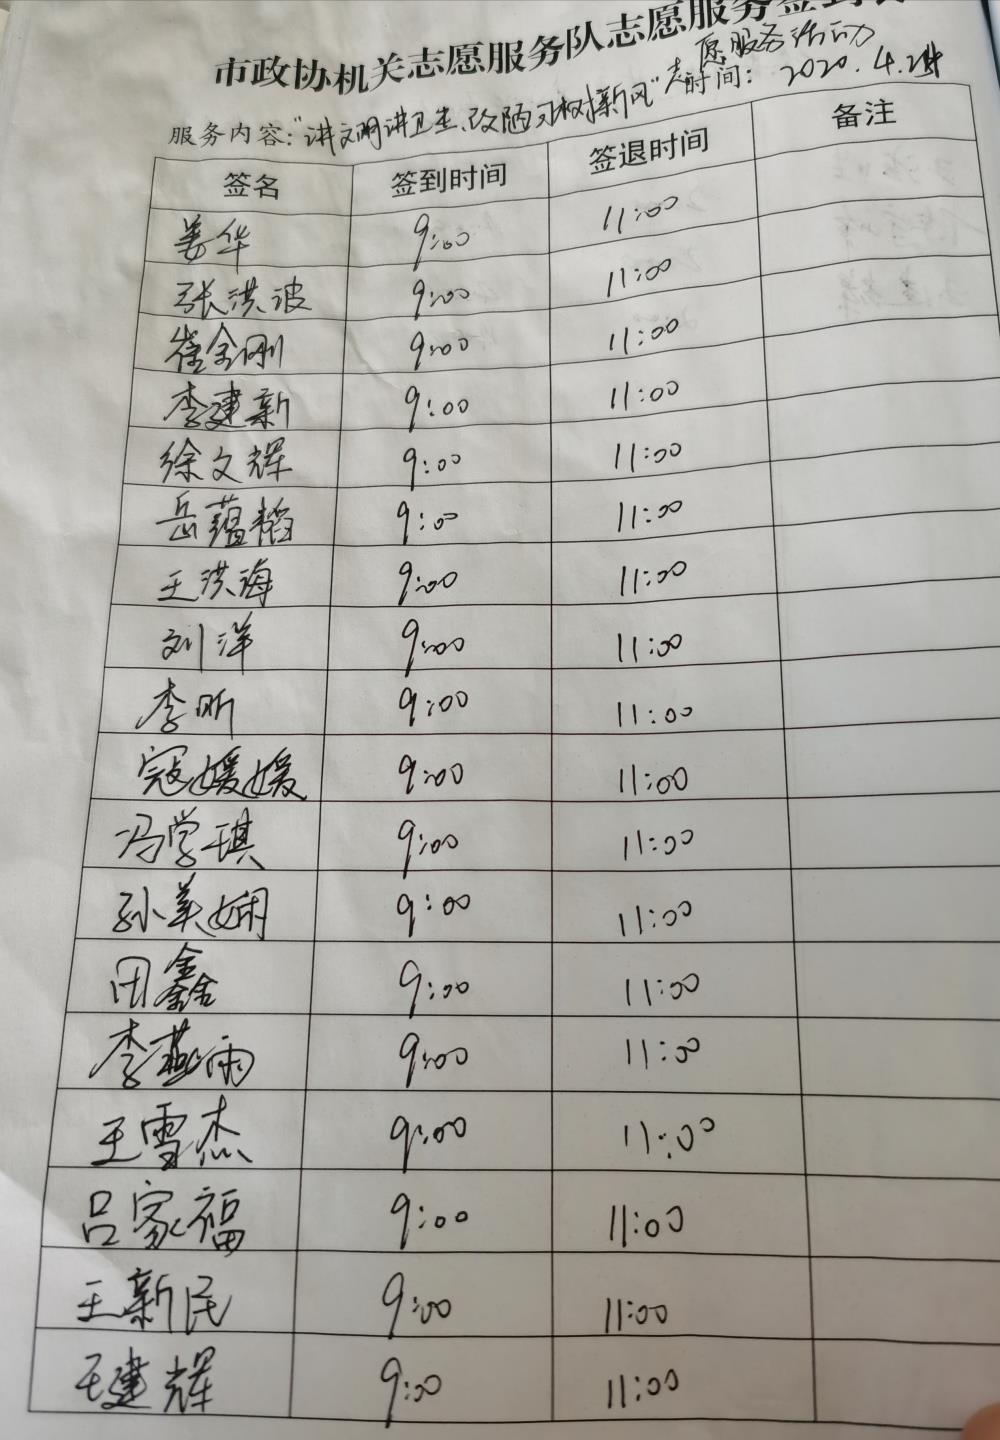 市政协机关志愿服务队志愿服务签到表
愿服务活动
服务内容:"讲文明讲卫生、改陋习树新风"志 时间: 2020.4.24
签名 签到时间 签退时间 备注
姜华 9:00 11:00
张洪波 9:00 11:00
崔金刚 9:00 11:00
李建新 9:00 11:00
徐文辉 9:00 11:00
岳蕴韬 9:00 11:00
王洪海 9:00 11:00
刘洋 9:00 11:00
李昕 9:00 11:00
寇媛媛 9:00 11:00
冯学琪 9:00 11:00
孙美娴 9:00 11:00
田鑫 9:00 11:00
李燕雨 9:00 11:00
王雪杰 9:00 11:00
吕家福 9:00 11:00
王新民 9:00 11:00
王建辉 9:00 11:00